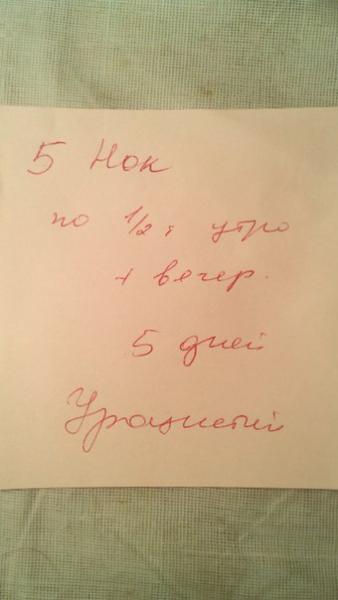 5 Нок
по 1/2 т утро
+ вечер.
5 дней